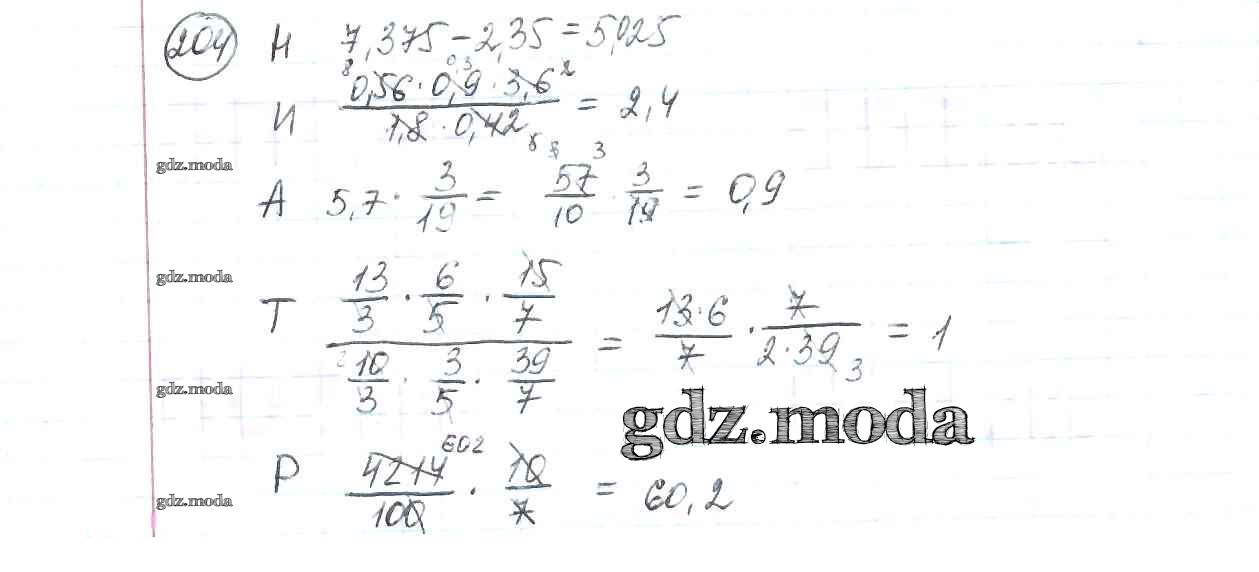 204 Н 7,375 - 2,35 = 5,025
8 0,3 2
И 0,56 · 0,9 · 3,6 / 1,8 · 0,42 = 2,4
gdz.moda
3
А 5,7 · 3/19 = 57/10 · 3/19 = 0,9
gdz.moda
Т 13/3 · 6/5 · 15/7 / 10/3 · 3/5 · 39/7 = 13·6/7 · 7/2·39 = 1
2 3
gdz.moda
gdz.moda
602
Р 4214/100 · 10/7 = 60,2
gdz.moda